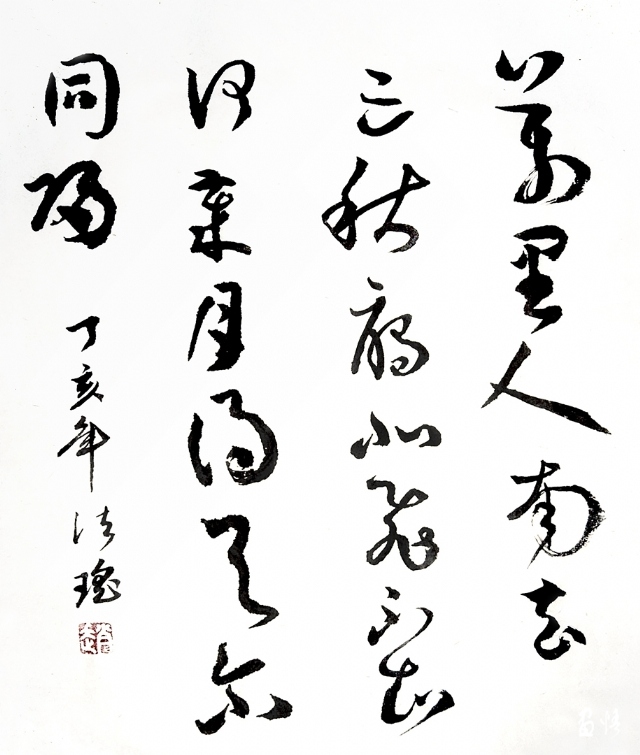 萬里人南去
三秋雁北飛不知
何歲月得與尔
同歸
丁亥年